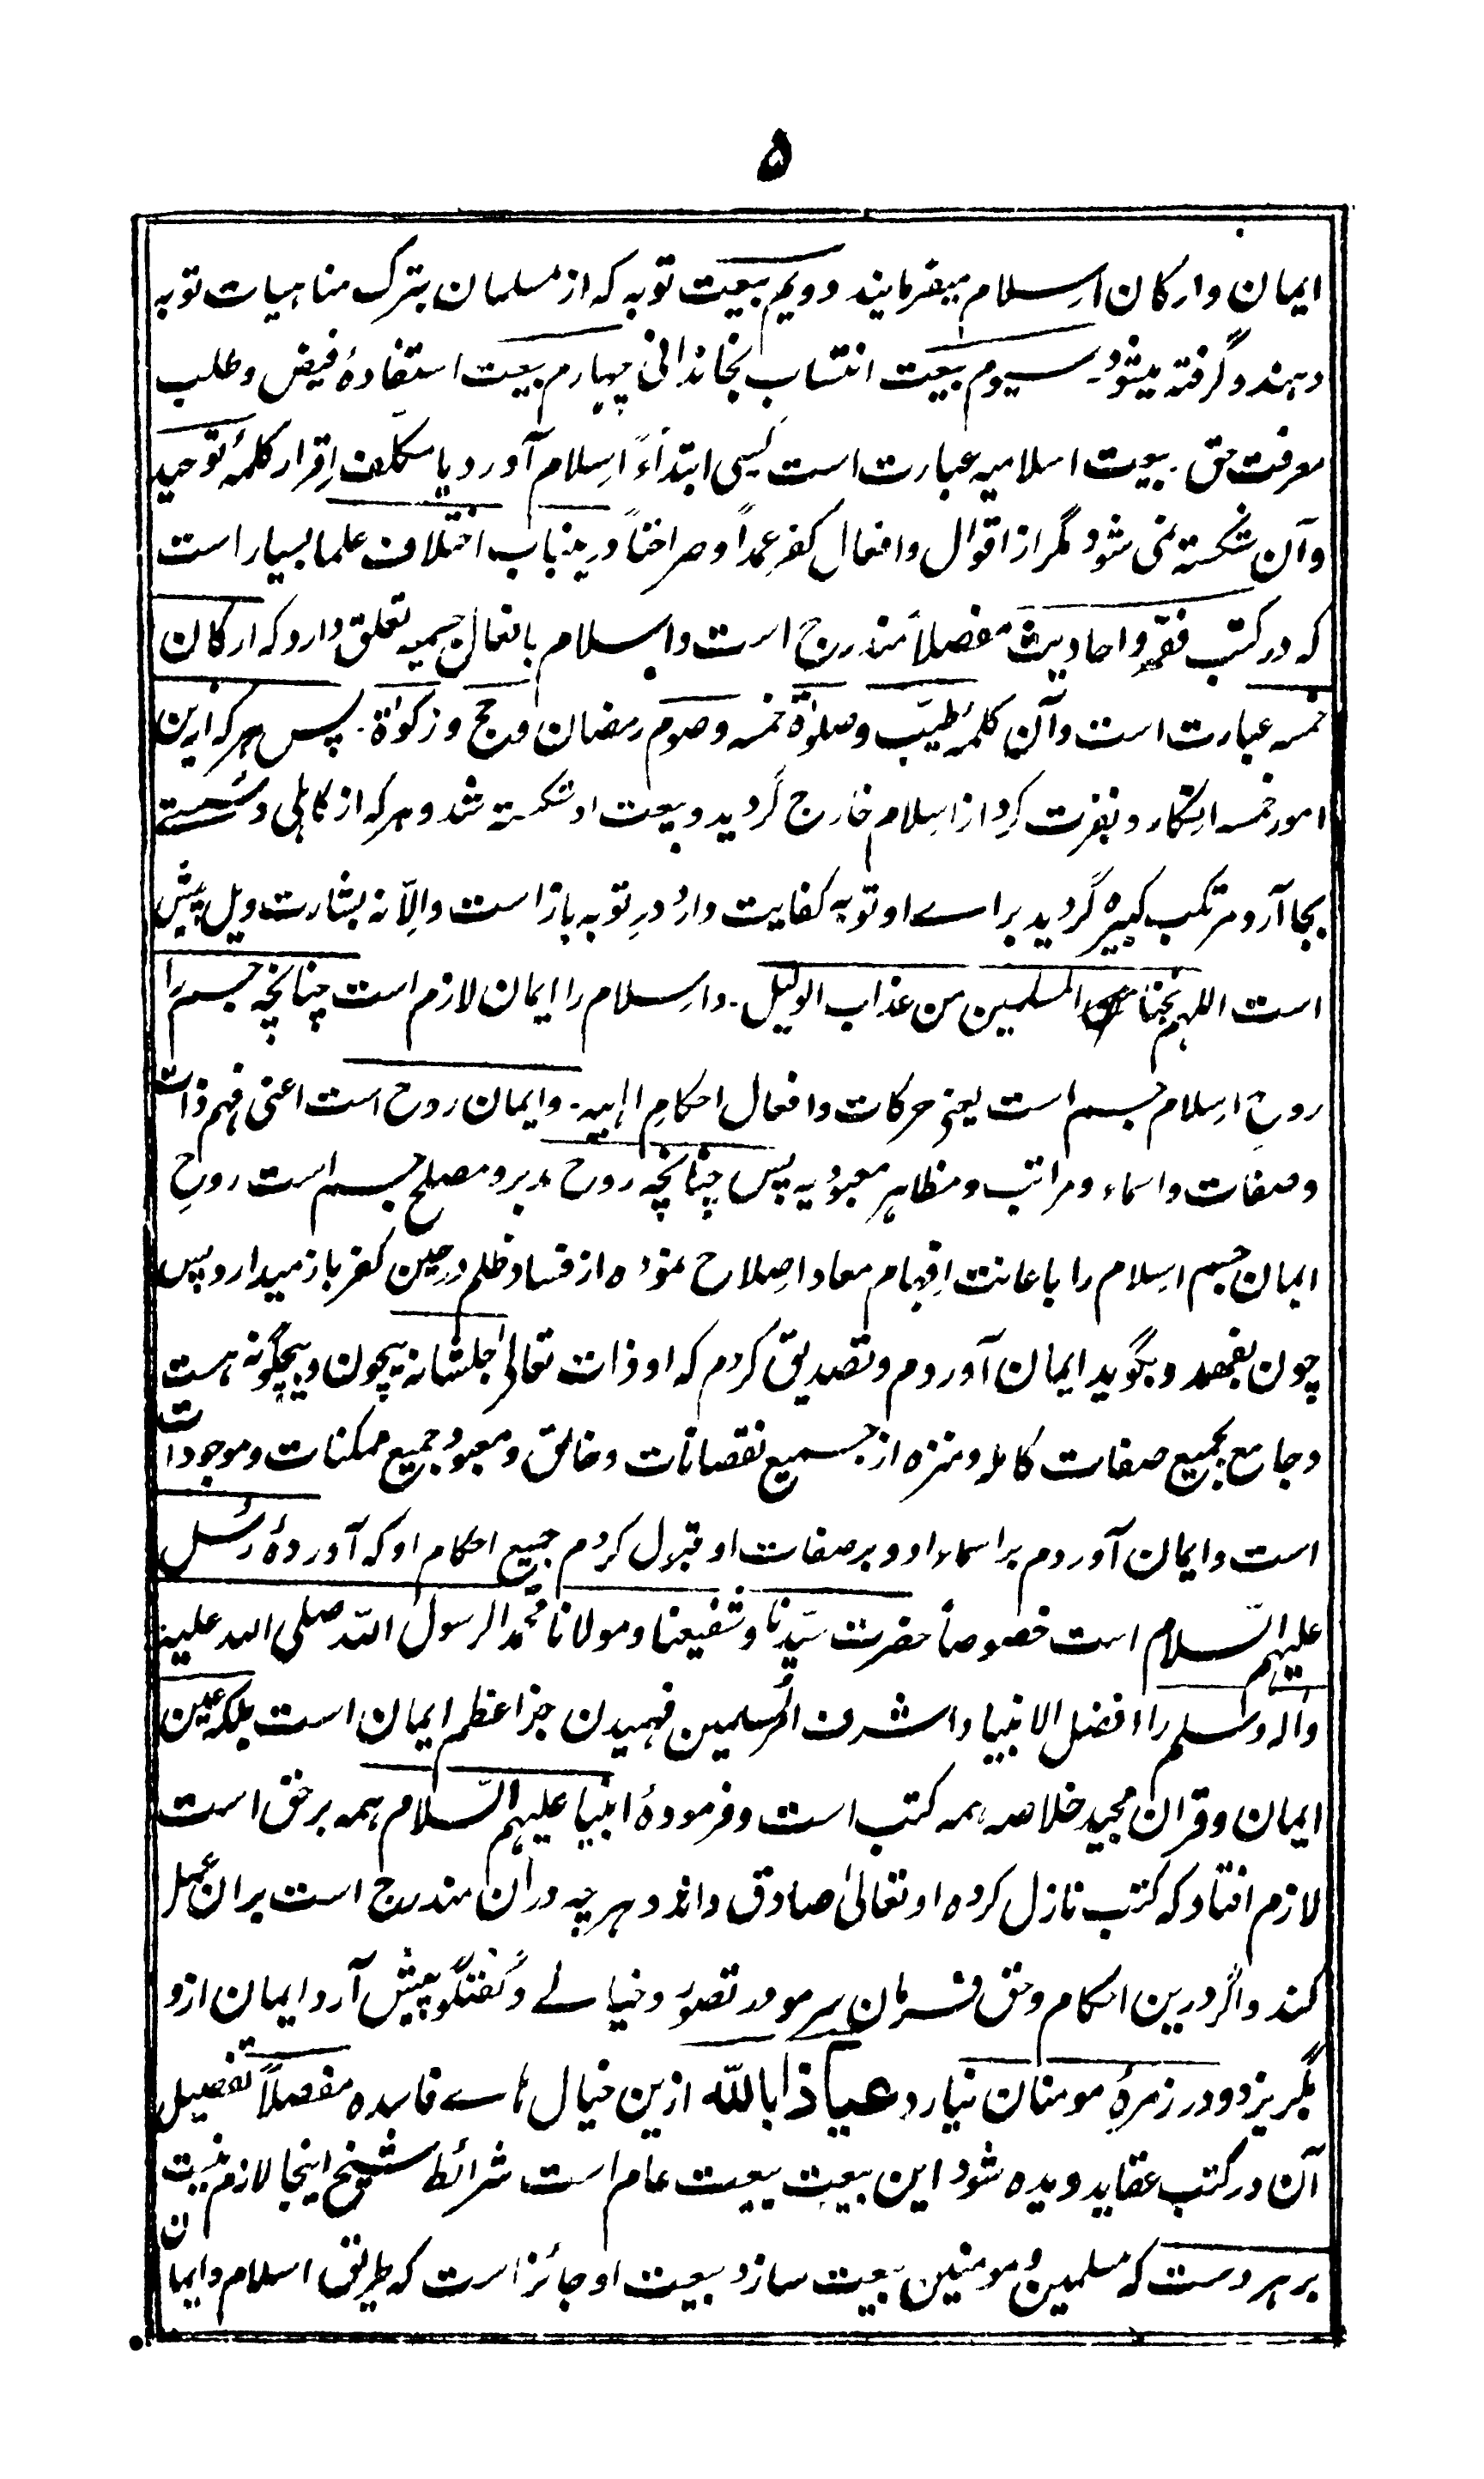 ۵
ایمان و ارکان اسلام میفرمایند دویم بیعت توبہ کہ از مسلمان بترک مناہیات توبہ
دہند و گرفتہ میشود۔ سیوم بیعت انتساب بخاندانی چہارم بیعت استفادۂ فیض و طلب
معرفت حق۔ بیعت اسلامیہ عبارت است کسی ابتداءً اسلام آورد یا مکلف اقرار کلمۂ توحید
و آن شکستہ نمی شود مگر از اقوال و افعال کفر عمداً و صراحتاً درینباب اختلاف علما بسیار است
کہ در کتب فقہ و احادیث مفصلاً مندرج است و اسلام بافعال جسمیہ تعلق دارد کہ ارکان
خمسہ عبارت است و آن کلمہ طیّب و صلوٰۃ خمسہ و صوم رمضان و حج و زکوٰۃ۔ پس ہر کہ ازین
امور خمسہ انکار و نفرت کرد از اسلام خارج گردید و بیعت او شکستہ شد و ہر کہ از کاہلی و سستے
بجا آرد مرتکب کبیرہ گردید براے او توبہ کفایت دارد درِ توبہ باز است و الّا نہ بشارت ویل پیش
است اللہم نجنا المسلمین من عذاب الویل۔ و اسلام را ایمان لازم است چنانچہ جسم را
روح اسلام جسم است یعنی حرکات و افعال احکامِ الٰہیہ۔ و ایمان روح است اعنی فہم ذات
و صفات و اسماء و مراتب و مظاہر معبودیہ پس چنانچہ روح مدبر و مصلح جسم است روحِ
ایمان جسم اسلام را باعانت اِفہام معاد اصلاح نمودہ از فساد ظلم درعین کفر باز میدارد پس
چون بفہمد و بگوید ایمان آوردم و تصدیق کردم کہ او ذات تعالیٰ جلشانہ بیچون و بیچگونہ ہست
و جامع بجمیع صفات کاملہ و منزہ از جمیع نقصانات و خالق و معبود جمیع ممکنات و موجودات
است و ایمان آوردم بر اسماء او و بر صفات او قبول کردم جمیع احکام او کہ آوردۂ رسل
علیہم السّلام است خصوصاً حضرت سیّدنا و شفیعنا و مولانا محمد الرسول اللہ صلی اللہ علیہ
و اٰلہ و سلم را افضل الانبیا و اشرف المرسلین فہمیدن جز اعظم ایمان است بلکہ عین
ایمان و قران مجید خلاصہ ہمہ کتب است و فرمودۂ انبیا علیہم السّلام ہمہ بر حق است
لازم افتاد کہ کتب نازل کردہ او تعالیٰ صادق داند و ہر چہ دران مندرج است بران عمل
کند و اگر درین احکام و حق فرمان سرمو در تصوّر و خیالے و گفتگو پیش آرد ایمان ازو
بگریزد و در زمرۂ مومنان نیارد عیاذاً باللہ ازین خیال ہاے فاسدہ مفصلاً تفصیل
آن در کتب عقاید دیدہ شود این بیعت بیعت عام است شرائط شیوخ اینجا لازم نیست
بر ہر دست کہ مسلمین و مومنین بیعت سازد بیعت او جائز است کہ طریق اسلام و ایمان